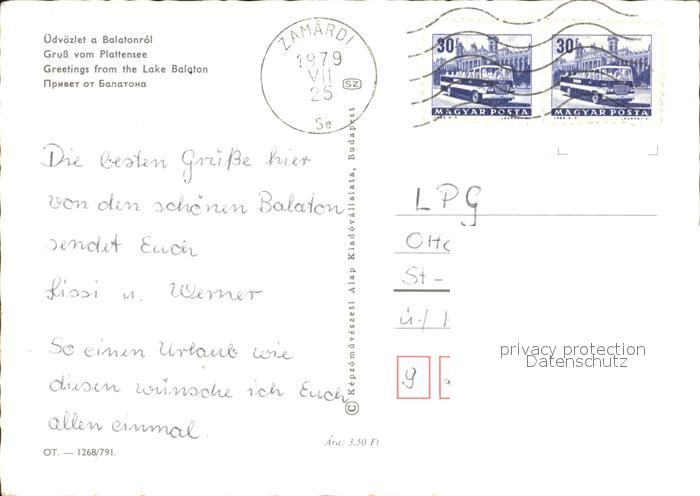 Üdvözlet a Balatonról
Gruß vom Plattensee
Greetings from the Lake Balaton
Привет от Балатона
ZAMÁRDI
1979
VII
25
SZ
Se
30f
MAGYAR POSTA
30f
MAGYAR POSTA
Die besten Grüße hier
von den schönen Balaton
sendet Euch
Lissi u. Werner
So einen Urlaub wie
diesen wünsche ich Euch
allen einmal.
OT. — 1268/791.
© Képzőművészeti Alap Kiadóvállalata, Budapest
Ára: 3.50 Ft
LPG
Otto
St-
ü./
9
privacy protection
Datenschutz